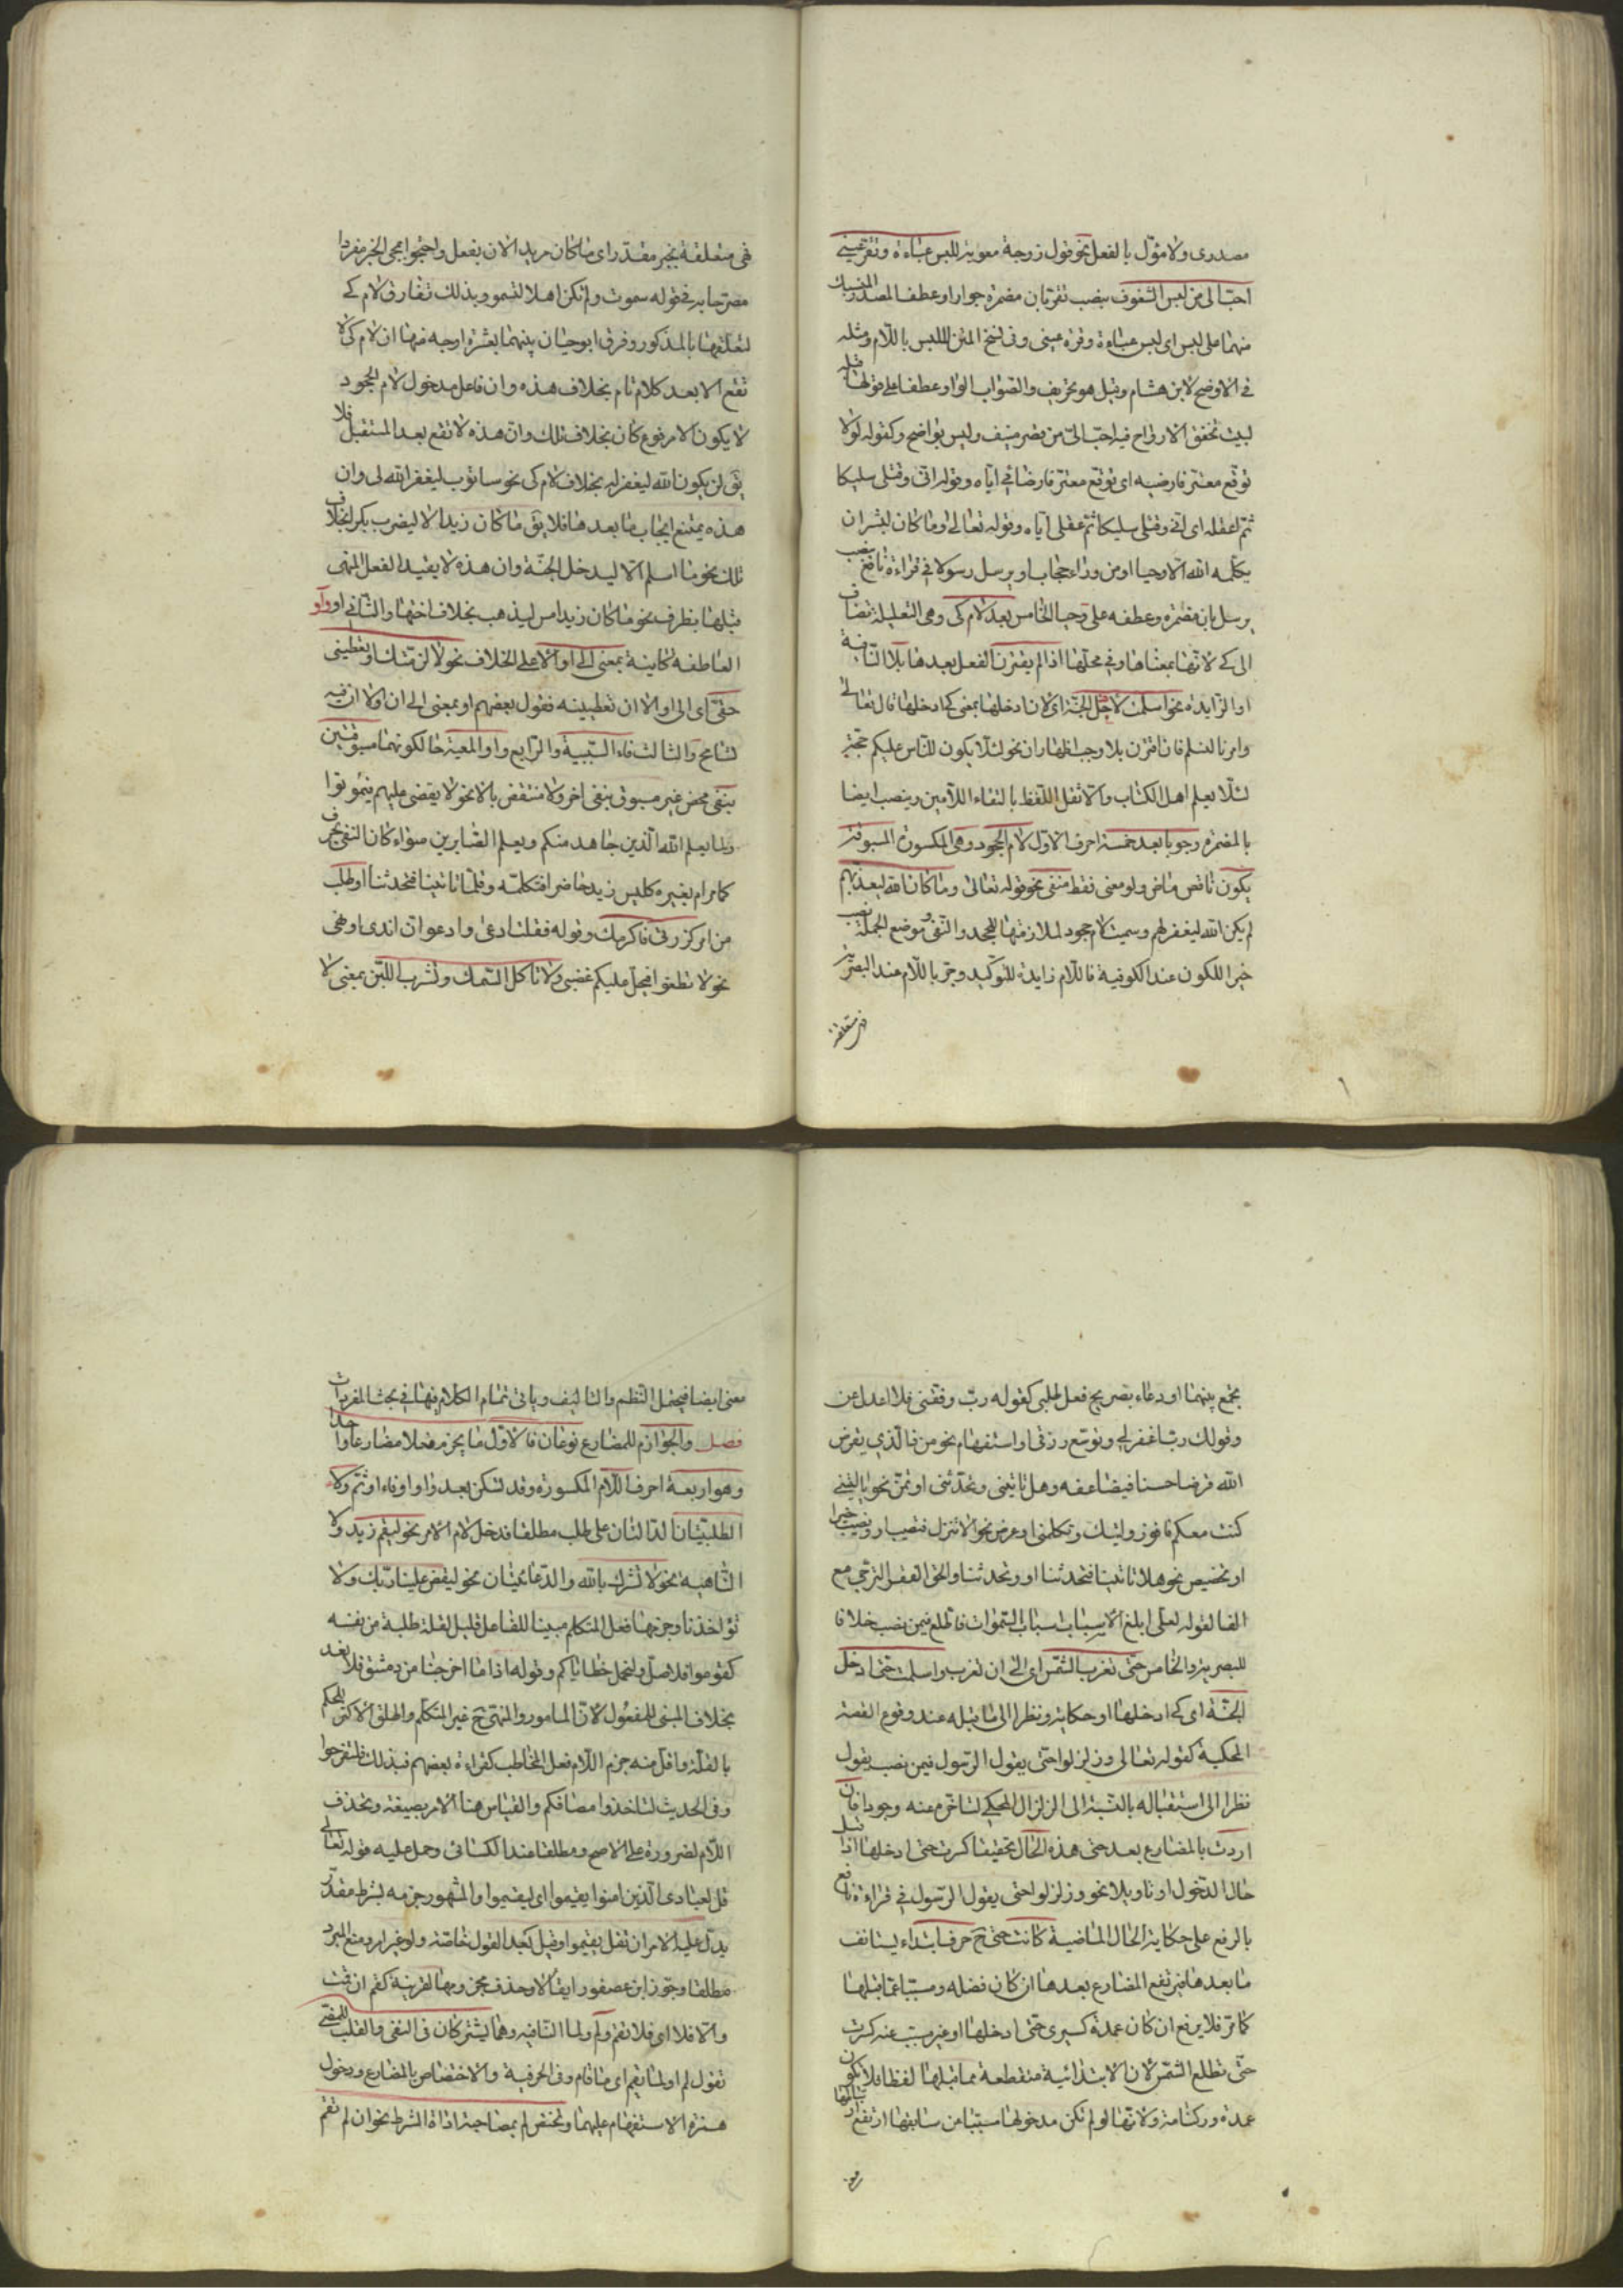 مصدرى ولا مؤول بالفعل نحو قول زوجة معوية للبس عباءة وتقر عينى
احب الى من لبس الشفوف بنصب تقر بان مضمرة جوازا وعطف المصدر المنسبك
منهما على لبس اى لبس عباءة وقرة عينى وفى نسخ المتن للبس باللام ومثله
فى الاوضح لابن هشام وقيل هو تحريف والصواب الواو عطفا على قولها قبله
لبيت تخفق الارواح فيه احب الى من قصر منيف وليس بواضح وكقوله لولا
توقع معتر فارضيه اى توقع معتر فارضائى اياه وقوله انى وقتلى سليكا
ثم اعقله اى انى وقتلى سليكا ثم عقلى اياه وقوله تعالى وما كان لبشر ان
يكلمه الله الا وحيا او من وراء حجاب او يرسل رسولا فى قراءة نافع بنصب
يرسل بان مضمرة وعطفه على وحيا الخامس بعد لام كى وهى التعليلة تضاف
الى كى لانها بمعناها وفى محلها اذا لم يقترن الفعل بعدها بلا النافية
او الزايدة نحو اسلمت لادخل الجنة اى لان ادخلها بمعنى كى ادخلها قال تعالى
وامرنا لنسلم فان اقترن بلا وجب اظهار ان نحو لئلا يكون للناس عليكم حجة
لئلا يعلم اهل الكتاب والا ثقل اللفظ بالتقاء اللامين وينصب ايضا
بالمضمرة وجوبا بعد خمسة احرف الاول لام الجحود وهى المكسورة المسبوقة
بكون ناقص ماض ولو معنى فقط منفى نحو قوله تعالى وما كان الله ليعذبهم
لم يكن الله ليغفر لهم وسميت لام جحود لملازمتها للجحد والنفى وموضع الجملة نصب
خبرا للكون عند الكوفية فاللام زايدة للتوكيد وجر باللام عند البصرية
فهى متعلقة
فهى متعلقة بخبر مقدر اى ما كان مريدا لان يفعل واحتجوا بمجى الخبر مفردا
مصرحا به فى قوله سموت ولم تكن اهلا لتسمو وبذلك تفارق لام كى
لتعلقها بالمذكور وفرق ابو حيان بينهما بعشرة اوجه منها ان لام كى لا
تقع الا بعد كلام تام بخلاف هذه وان فاعل مدخول لام الجحود
لا يكون الا مرفوع كان بخلاف تلك وان هذه لا تقع بعد المستقبل فلا
يق لن يكون الله ليغفر له بخلاف لام كى نحو ساتوب ليغفر الله لى وان
هذه يمتنع ايجاب ما بعدها فلا يق ما كان زيد الا ليضرب بكرا بخلاف
تلك نحو ما اسلم الا ليدخل الجنة وان هذه لا يقيد الفعل المنفى
قبلها بظرف نحو ما كان زيد امس ليذهب بخلاف اختها والثانى او واو
العاطفة كاينة بمعنى الى او الا على الخلاف نحو لالزمنك او تعطينى
حقى اى الى او الا ان تعطينيه فقول بعضهم او بمعنى الى ان والا ان فيه
تسامح والثالث فاء السببية والرابع واو المعية حالكونهما مسبوقتين
بنفى محض غير مسبوق بنفى اخر ولا منتقض بالا نحو لا يقضى عليهم فيموتوا
ولما يعلم الله الذين جاهدوا منكم ويعلم الصابرين سواء كان النفى بحرف
كما مر ام بغيره كليس زيد حاضرا فتكلمه وقلما تاتينا فتحدثنا او طلب
من امر كزرنى فاكرمك وقوله فقلت ادعى وادعو ان اندى او نهى
نحو لا تطغوا فيحل عليكم غضبى ولا تاكل السمك وتشرب اللبن بمعنى لا
تجمع بينهما او دعاء بصريح فعل طلبى كقوله رب وفقنى فلا اعدل عن
وقولك رب اغفر لى وتوسع رزقى او استفهام نحو من ذا الذى يقرض
الله قرضا حسنا فيضاعفه وهل تاتينى وتحدثنى او تمن نحو يا ليتنى
كنت معكم فافوز وليتك وتكلمنى او عرض نحو الا تنزل فتصيب او وتصيب خيرا
او تحضيض نحو هلا تاتينا فتحدثنا او وتحدثنا والحق الفراء الترجى مع
الفا لقوله لعلى ابلغ الاسباب اسباب السموات فاطلع فيمن نصب خلافا
للبصرية والخامس حتى تغرب الشمس اى الى ان تغرب واسلمت حتى ادخل
الجنة اى كى ادخلها او حكاية ونظرا الى ما قبله عند وقوع القصة
المحكية كقوله تعالى وزلزلوا حتى يقول الرسول فيمن نصب يقول
نظرا الى استقباله بالنسبة الى الزلزال المحكى لتاخره عنه وجودا فان
اردت بالمضارع بعد حتى هذه الحال تحقيقا كسرت حتى ادخلها اذا قيل
حال الدخول او تاويلا نحو وزلزلوا حتى يقول الرسول فى قراءة نافع
بالرفع على حكاية الحال الماضية كانت حتى ح حرف ابتداء يستانف
ما بعدها فيرتفع المضارع بعدها ان كان فضله ومسببا عما قبلها
كما مر فلا يرفع ان كان عمدة كسيرى حتى ادخلها او غير مسبب عنه كسرت
حتى تطلع الشمس لان الابتدائية منقطعة مما قبلها لفظا فلا يكون
عمدة وركنا منه ولانها لو لم تكن مدخولها مسببا من سابقها ارتفع
معنى ايضا فيختل النظم والتاليف وياتى تمام الكلام فيها فى بحث المفردات
فصل والجوازم للمضارع نوعان فالاول ما يجزم فعلا مضارعا واحدا
وهو اربعة احرف اللام المكسورة وقد تسكن بعد واو او فاء او ثم ولا
الطلبيتان الدالتان على طلب مطلقا فدخل لام الامر نحو ليقم زيد ولا
الناهية نحو لا تشرك بالله والدعائيتان نحو ليقض علينا ربك ولا
تؤاخذنا وجزمها فعل المتكلم مبنيا للفاعل قليل لقلة طلبه من نفسه
كقوموا فلاصل ولنحمل خطاياكم وقوله اذا ما اخرجنا من دمشق فلا نعد
بخلاف المبنى للمفعول لان المامور والمنهى ح غير المتكلم واطلق الاكثر الحكم
بالقلة واقل منه جزم اللام فعل المخاطب كقراءة بعضهم فبذلك فلتفرحوا
وفى الحديث لتاخذوا مصافكم والقياس هنا الامر بصيغة وتحذف
اللام لضرورة على الاصح ومطلقا عند الكسائى وحمل عليه قوله تعالى
قل لعبادى الذين امنوا يقيموا اى ليقيموا والمشهور جزمه بشرط مقدر
يدل عليه الامر ان تقل يقيموا وقيل كعبد القول خاصة ولو غير امر ومنع المبرد
مطلقا وجوز ابن عصفور ايقاء لا وحذف مجزومها لقرينة كقم ان قمت
والا فلا اى فلا تقم ولم ولما النافية وهما يشتركان فى النفى والقلب للمضى
تقول لم او لما يقم اى ما قام وفى الحرفية والاختصاص بالمضارع ودخول
همزة الاستفهام عليهما وتختص لم بمصاحبة اداة الشرط نحو ان لم تقم